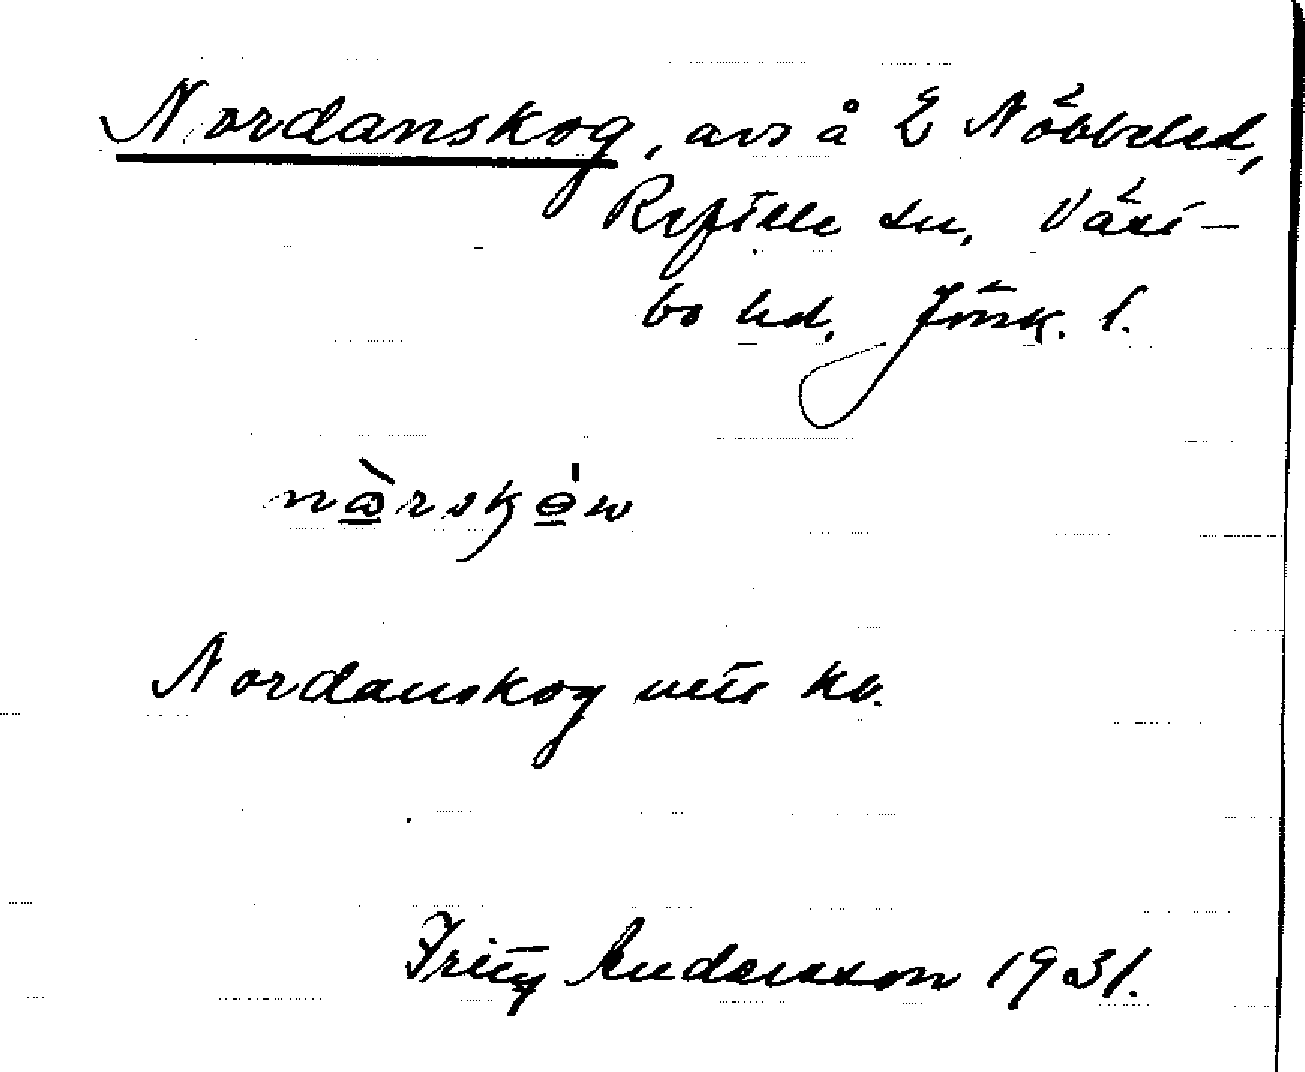 Nordanskog, avs å E Nöbbeled,
Reftele sn, Västbo hd, Jönk. l.
nɷ̀rskɵ́w
Nordanskog uttr kb.
Fritz Andersson 1931.